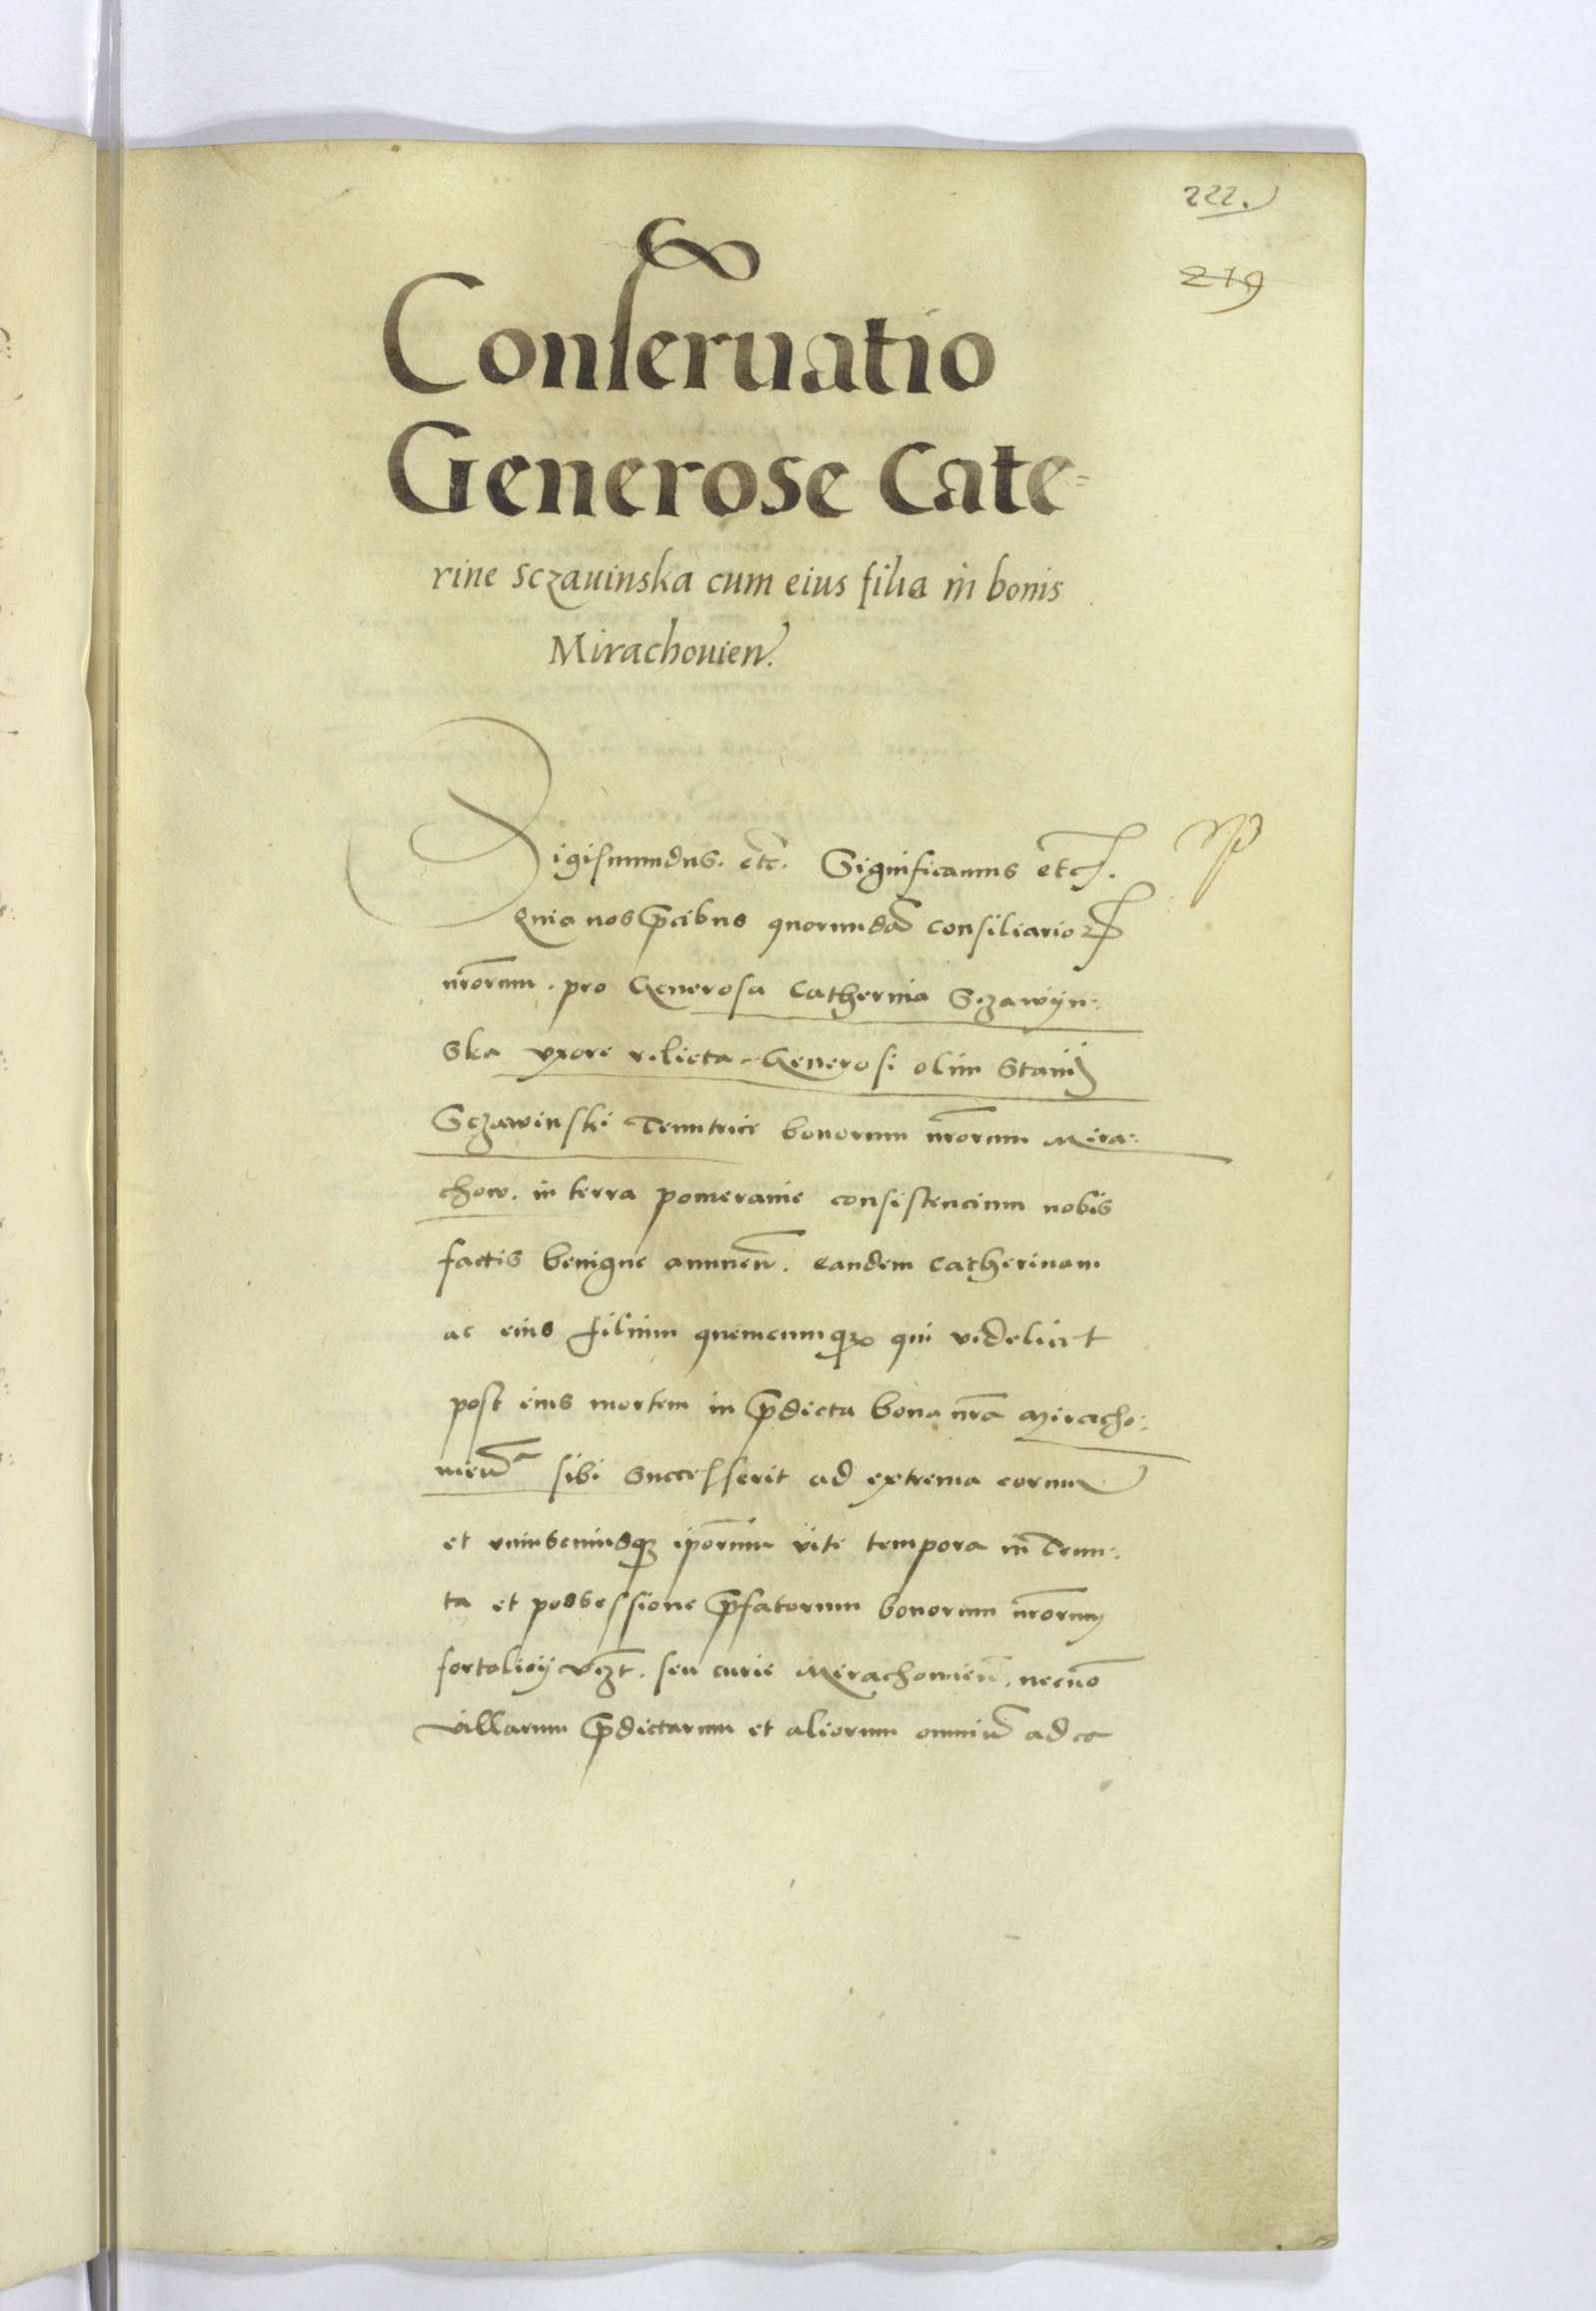 222.
219
Conseruatio
Generose Cate=
rine Sczauinska cum eius filia in bonis
Mirachouien.
Sigismundus. etc. Significamus etc.
Quia nos p̄cibus quorundā consiliarioꝝ
nr̄orum. pro Generosa Catherina Sczawyn:
ska vxore relicta Generosi olim Stanij
Sczawinski Tenutrice bonorum nr̄orum Mira:
chow. in terra pomeranie consistencium nobis
factis benigne annuen̄. eandem Catherinam
ac eius filium quemcumqꝫ qui videlicet
post eius mortem in p̄dicta bona nr̄a Miracho:
uien̄ sibi successerit ad extrema eorum
et vniuscuiusqꝫ ip̄orum vite tempora in Tenu:
ta et possessione p̄fatorum bonorum nr̄orum
fortalicij vꝫt. seu curie Mirachouien̄. necnō
villarum p̄dictarum et aliorum omniū ad ea